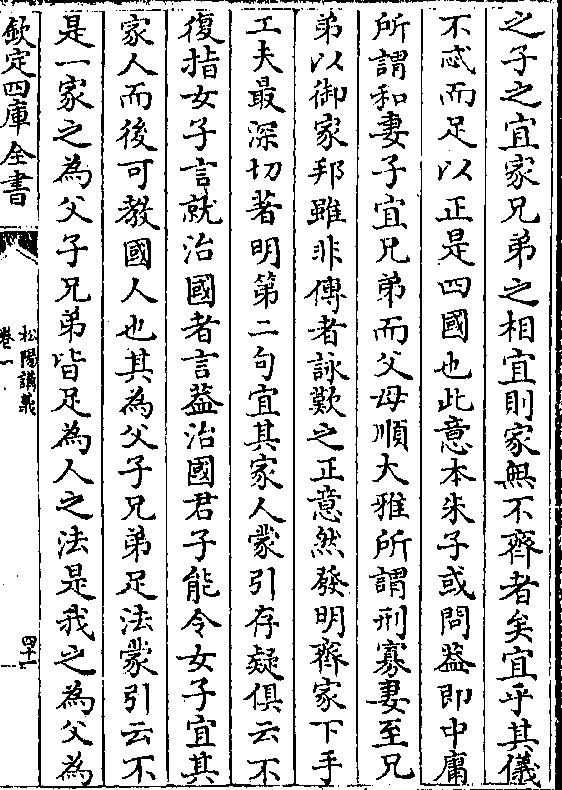 之子之宜家兄弟之相宜則家無不齊者矣宜乎其儀
不忒而足以正是四國也此意本朱子或問葢即中庸
所謂和妻子宜兄弟而父母順大雅所謂刑寡妻至兄
弟以御家邦雖非傳者詠歎之正意然發明齊家下手
工夫最深切著明第二句宜其家人蒙引存疑俱云不
復指女子言就治國者言葢治國君子能令女子宜其
家人而後可教國人也其為父子兄弟足法蒙引云不
是一家之為父子兄弟皆足為人之法是我之為父為
欽定四庫全書
松陽講義
卷一
四十一